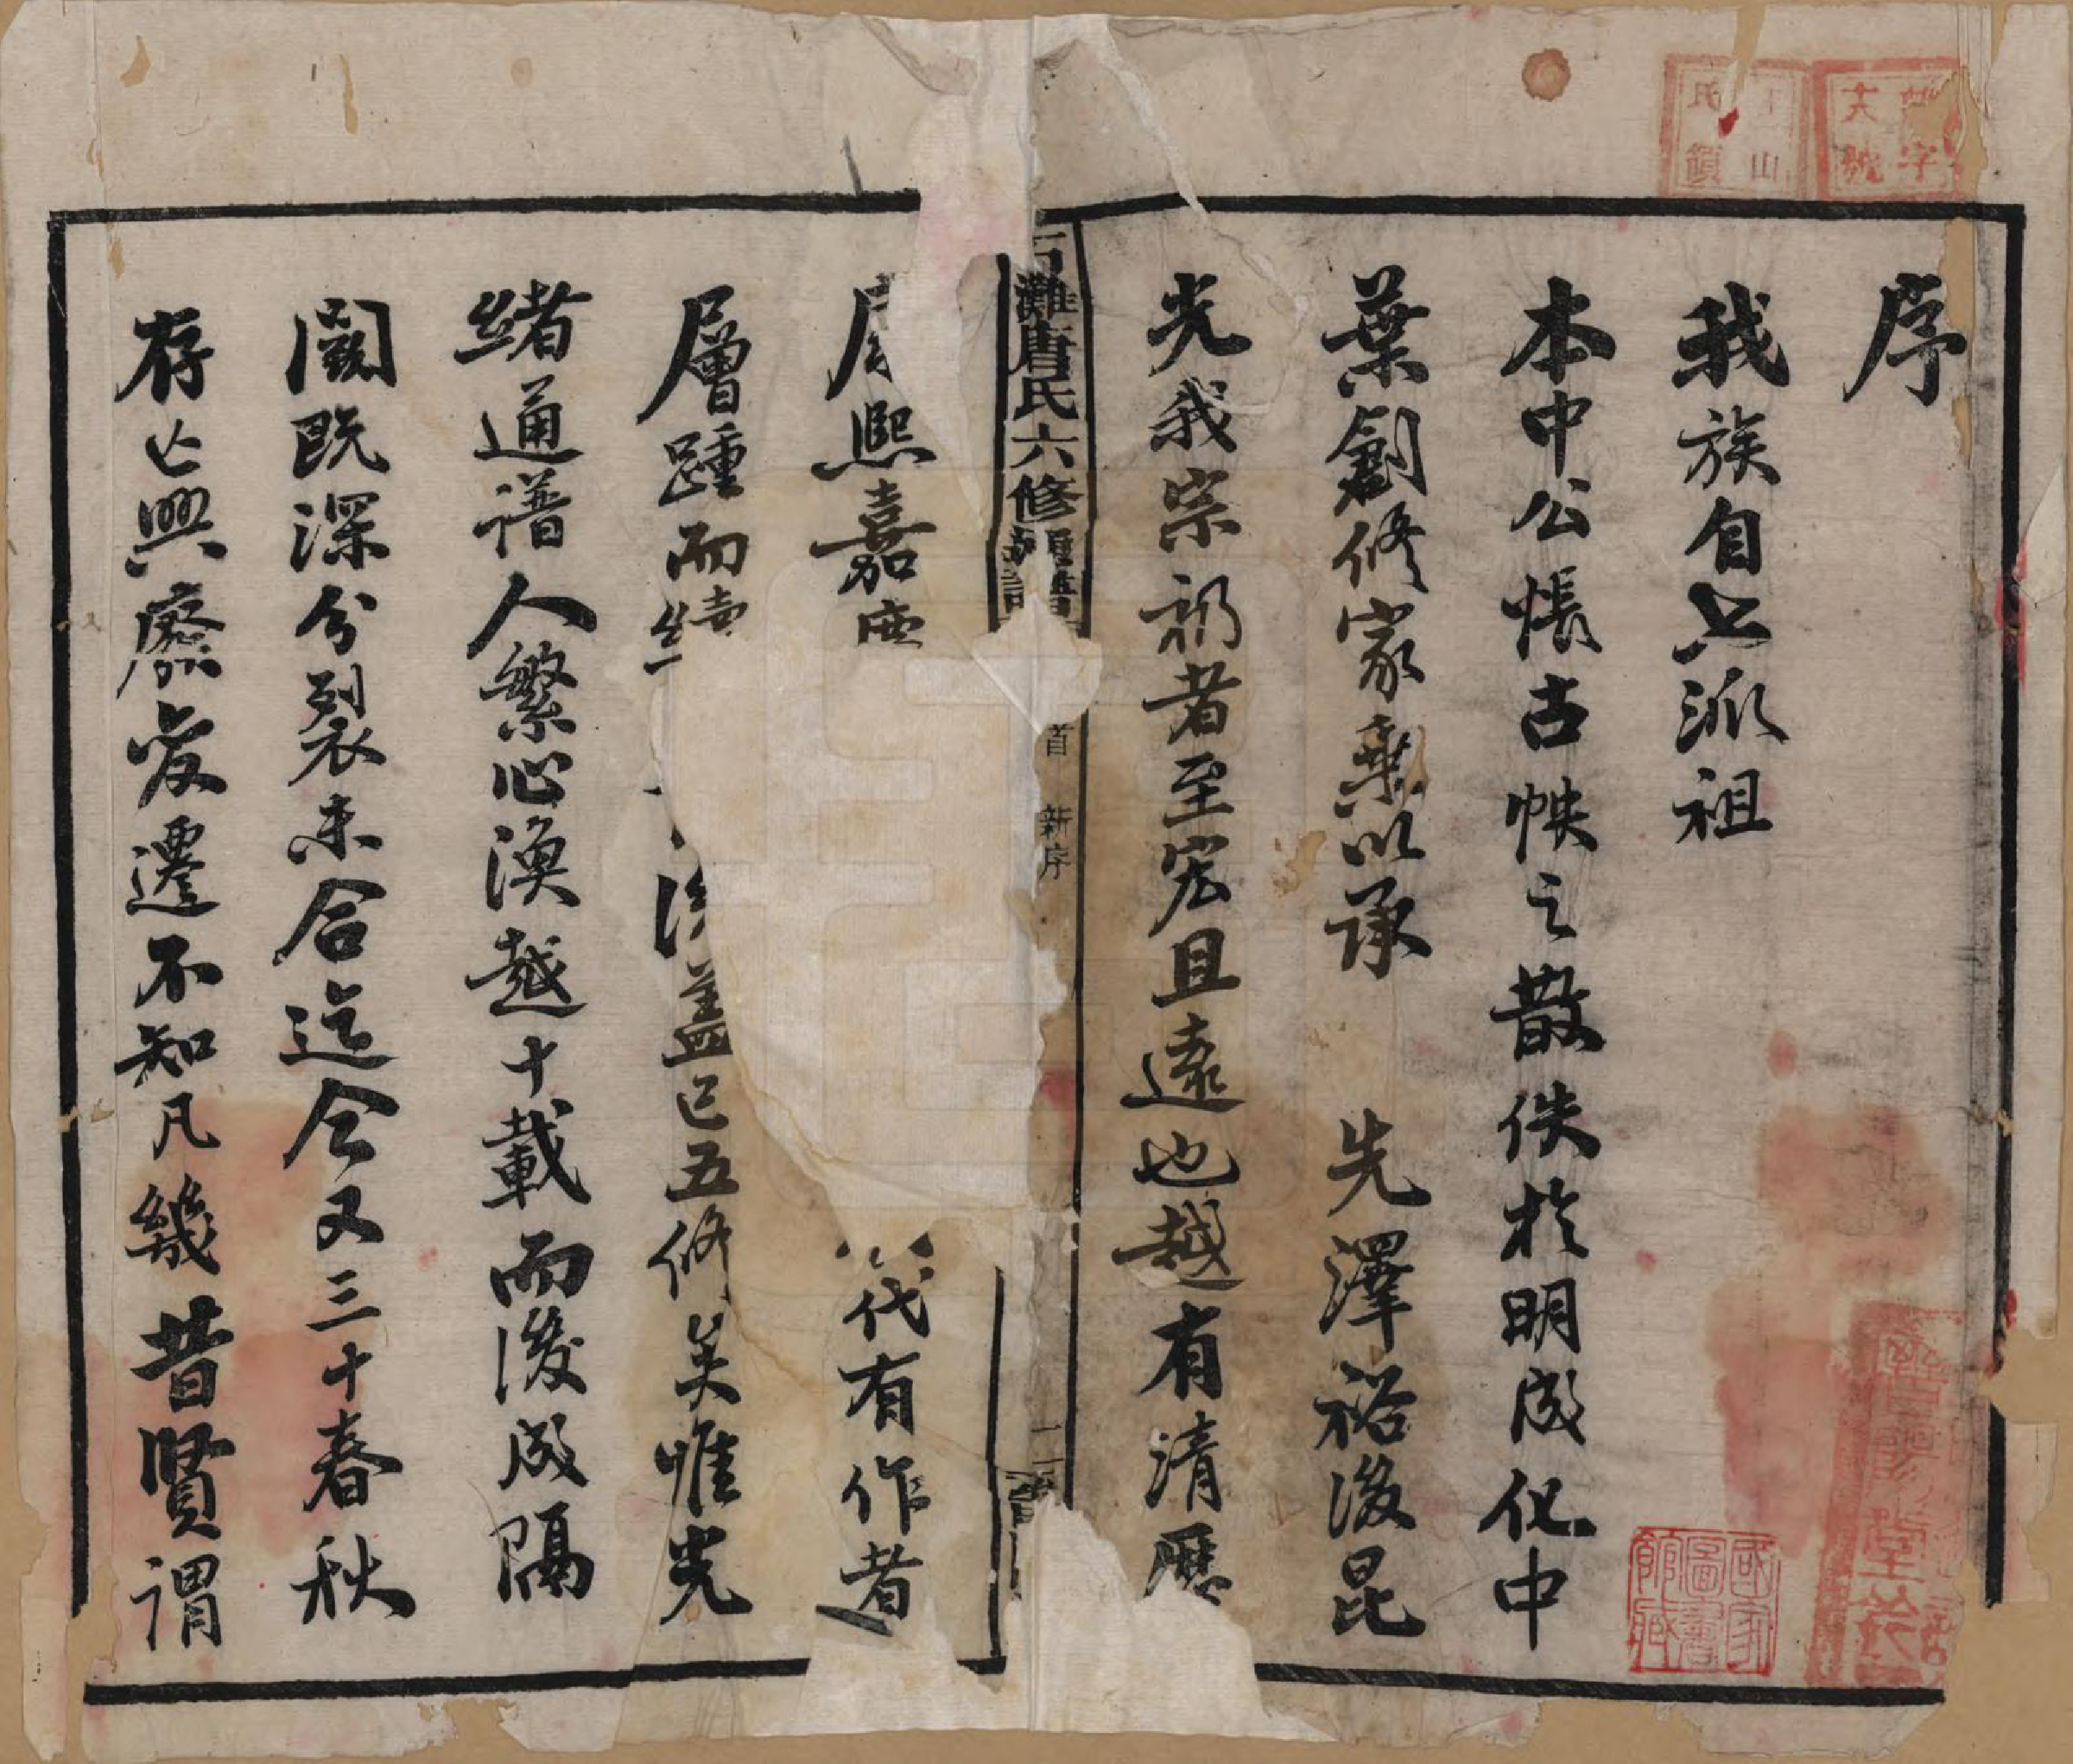 序
我族自上派祖
本中公悵古帙之散佚於明成化中
葉創修家乘以承 先澤裕後昆
光我宗祊者至宏且遠也越有清歷
石灘唐氏六修譜
首 新序
二
熙嘉 代有作者
層踵而續 盖已五修矣唯光
緒通譜人繁心渙越十載而後成隔
閡既深分裂未合迄今又三十春秋
存亡興廢變遷不知凡幾昔賢謂
字
號
山
氏
國家圖書館藏
堂